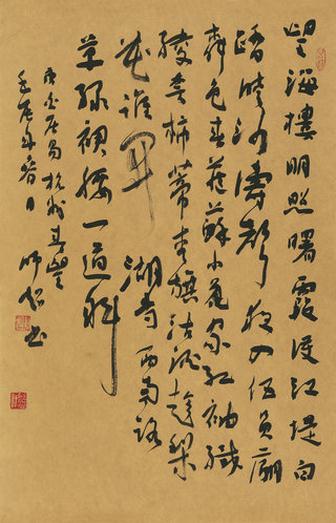 望海樓明照曙霞護江堤白
踏晴沙濤聲夜入伍員廟
柳色春藏蘇小家紅袖織
綾夸柿蒂青旗沽酒趁梨
花誰開湖寺西南路
草绿裙腰一道斜
唐白居易杭州春望
壬辰年春日
书